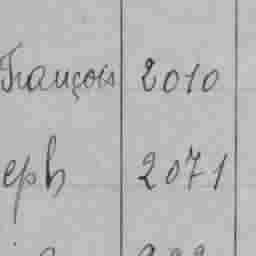 François 2010
eph 2071